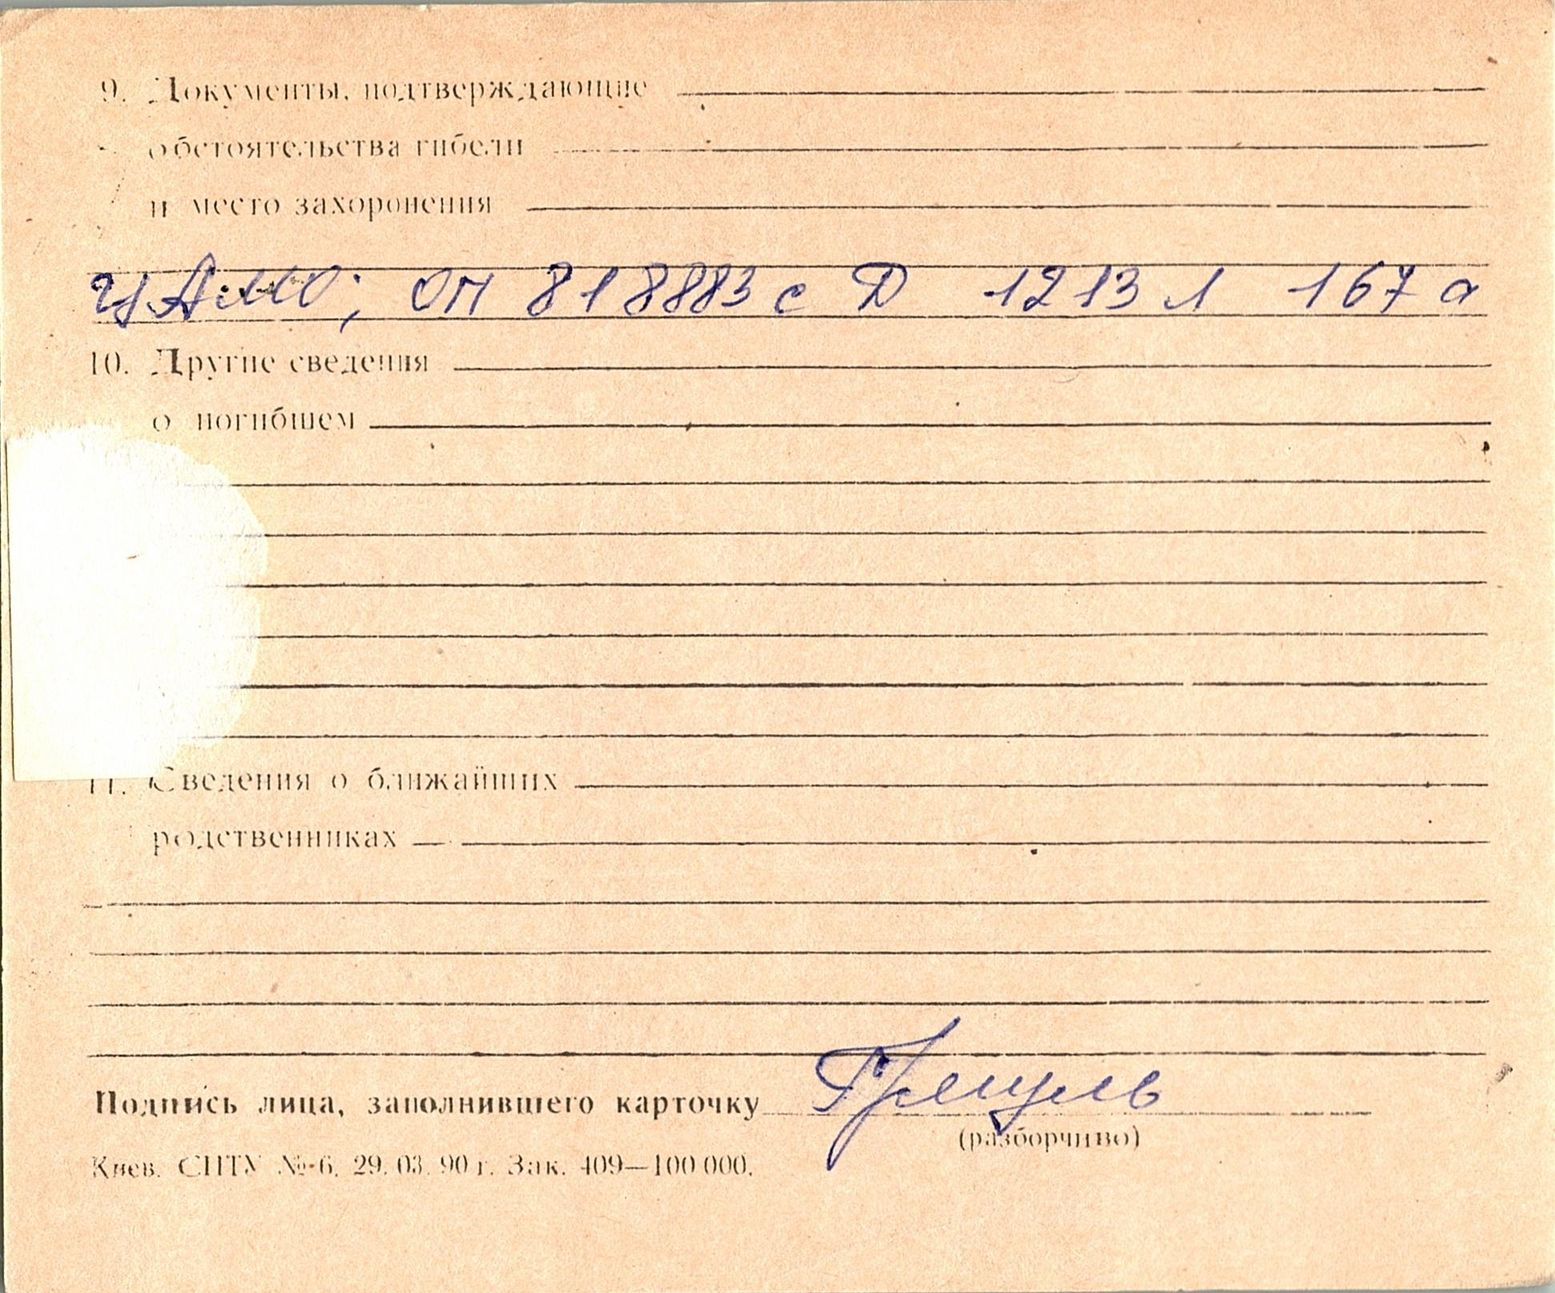 9. Документы, подтверждающие
обстоятельства гибели
и место захоронения
ЦАМО; ОП 818883 с Д 1213 Л 167 а
10. Другие сведения
о погибшем
11. Сведения о ближайших
родственниках
Подпись лица, заполнившего карточку
(разборчиво)
Киев. СПТУ №-6. 29. 03. 90 г. Зак. 409—100 000.